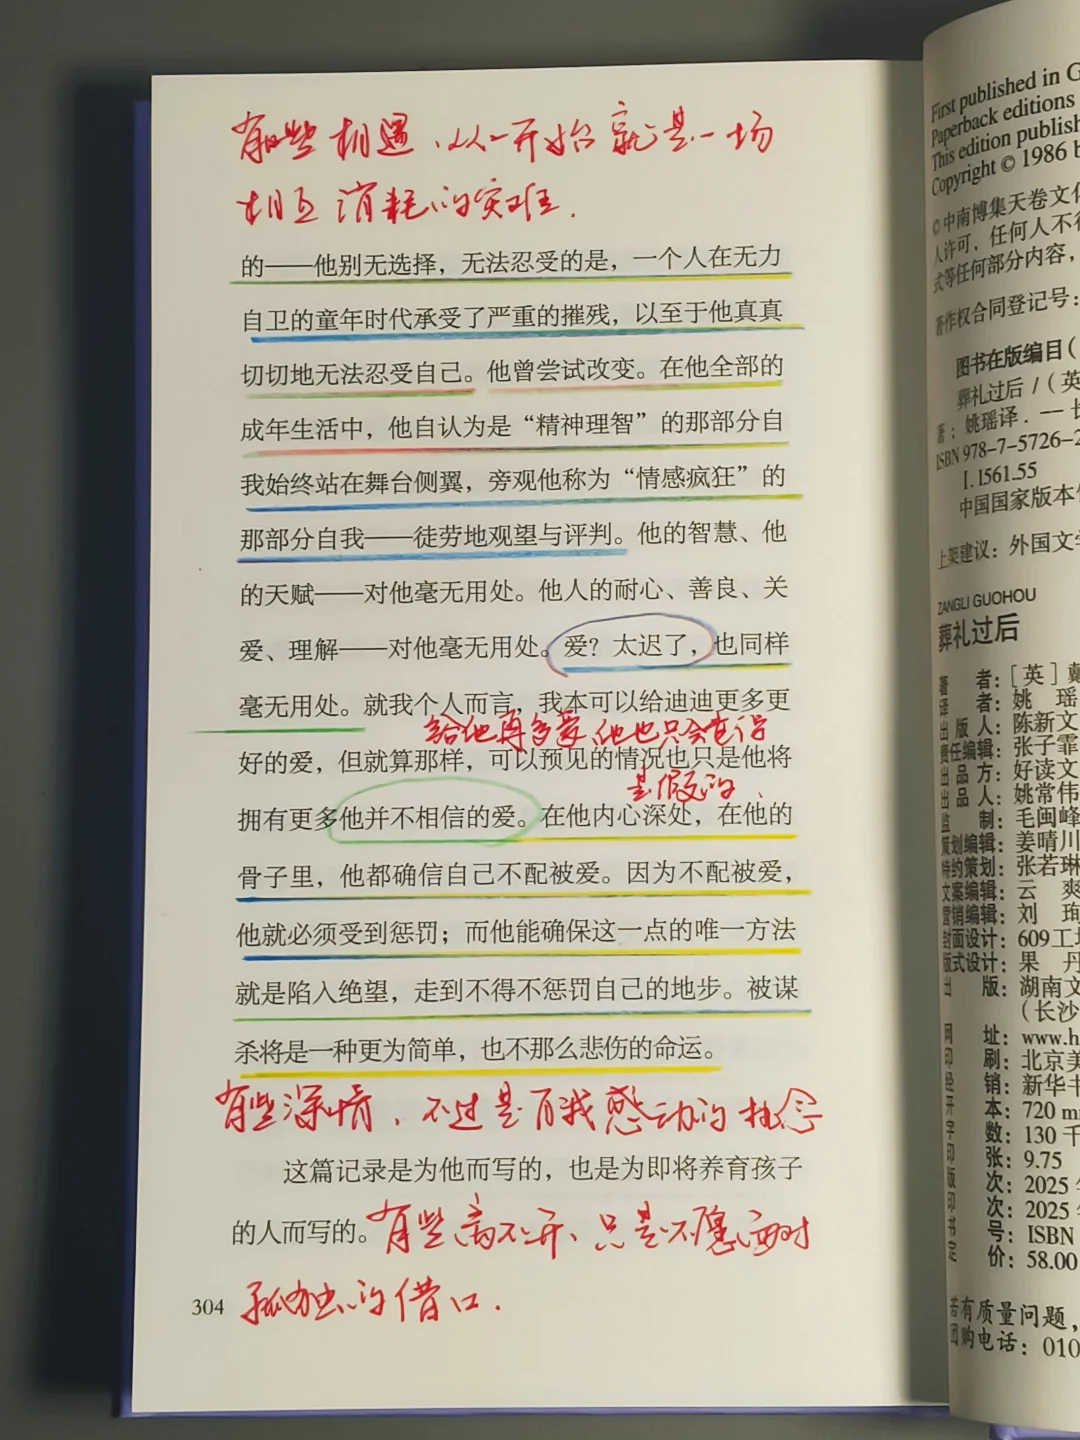 有些相遇，从一开始就是一场
相互消耗的灾难.
的——他别无选择，无法忍受的是，一个人在无力
自卫的童年时代承受了严重的摧残，以至于他真真
切切地无法忍受自己。他曾尝试改变。在他全部的
成年生活中，他自认为是“精神理智”的那部分自
我始终站在舞台侧翼，旁观他称为“情感疯狂”的
那部分自我——徒劳地观望与评判。他的智慧、他
的天赋——对他毫无用处。他人的耐心、善良、关
爱、理解——对他毫无用处。爱？太迟了，也同样
毫无用处。就我个人而言，我本可以给迪迪更多更
给他再多爱，他也只会觉得
好的爱，但就算那样，可以预见的情况也只是他将
是假的.
拥有更多他并不相信的爱。在他内心深处，在他的
骨子里，他都确信自己不配被爱。因为不配被爱，
他就必须受到惩罚；而他能确保这一点的唯一方法
就是陷入绝望，走到不得不惩罚自己的地步。被谋
杀将是一种更为简单，也不那么悲伤的命运。
有些深情，不过是自我感动的执念
这篇记录是为他而写的，也是为即将养育孩子
的人而写的。
有些离不开，只是不愿面对
孤独的借口.
304
First published in G
Paperback editions
This edition publish
Copyright © 1986 b
©中南博集天卷文化
人许可，任何人不得
式等任何部分内容，
著作权合同登记号：
图书在版编目（
葬礼过后 /（英
著；姚瑶译. — 长
ISBN 978-7-5726-2
Ⅰ. I561.55
中国国家版本
上架建议：外国文学
ZANGLI GUOHOU
葬礼过后
著 者：［英］戴
译 者：姚 瑶
出 版 人：陈新文
责任编辑：张子霏
出 品 方：好读文
出 品 人：姚常伟
监 制：毛闽峰
策划编辑：姜晴川
特约策划：张若琳
文案编辑：云 爽
营销编辑：刘 珣
封面设计：609工
版式设计：果 丹
出 版：湖南文
（长沙
网 址：www.h
印 刷：北京美
经 销：新华书
开 本：720 m
字 数：130 千
印 张：9.75
版 次：2025
印 次：2025
书 号：ISBN
定 价：58.00
若有质量问题，
团购电话：010